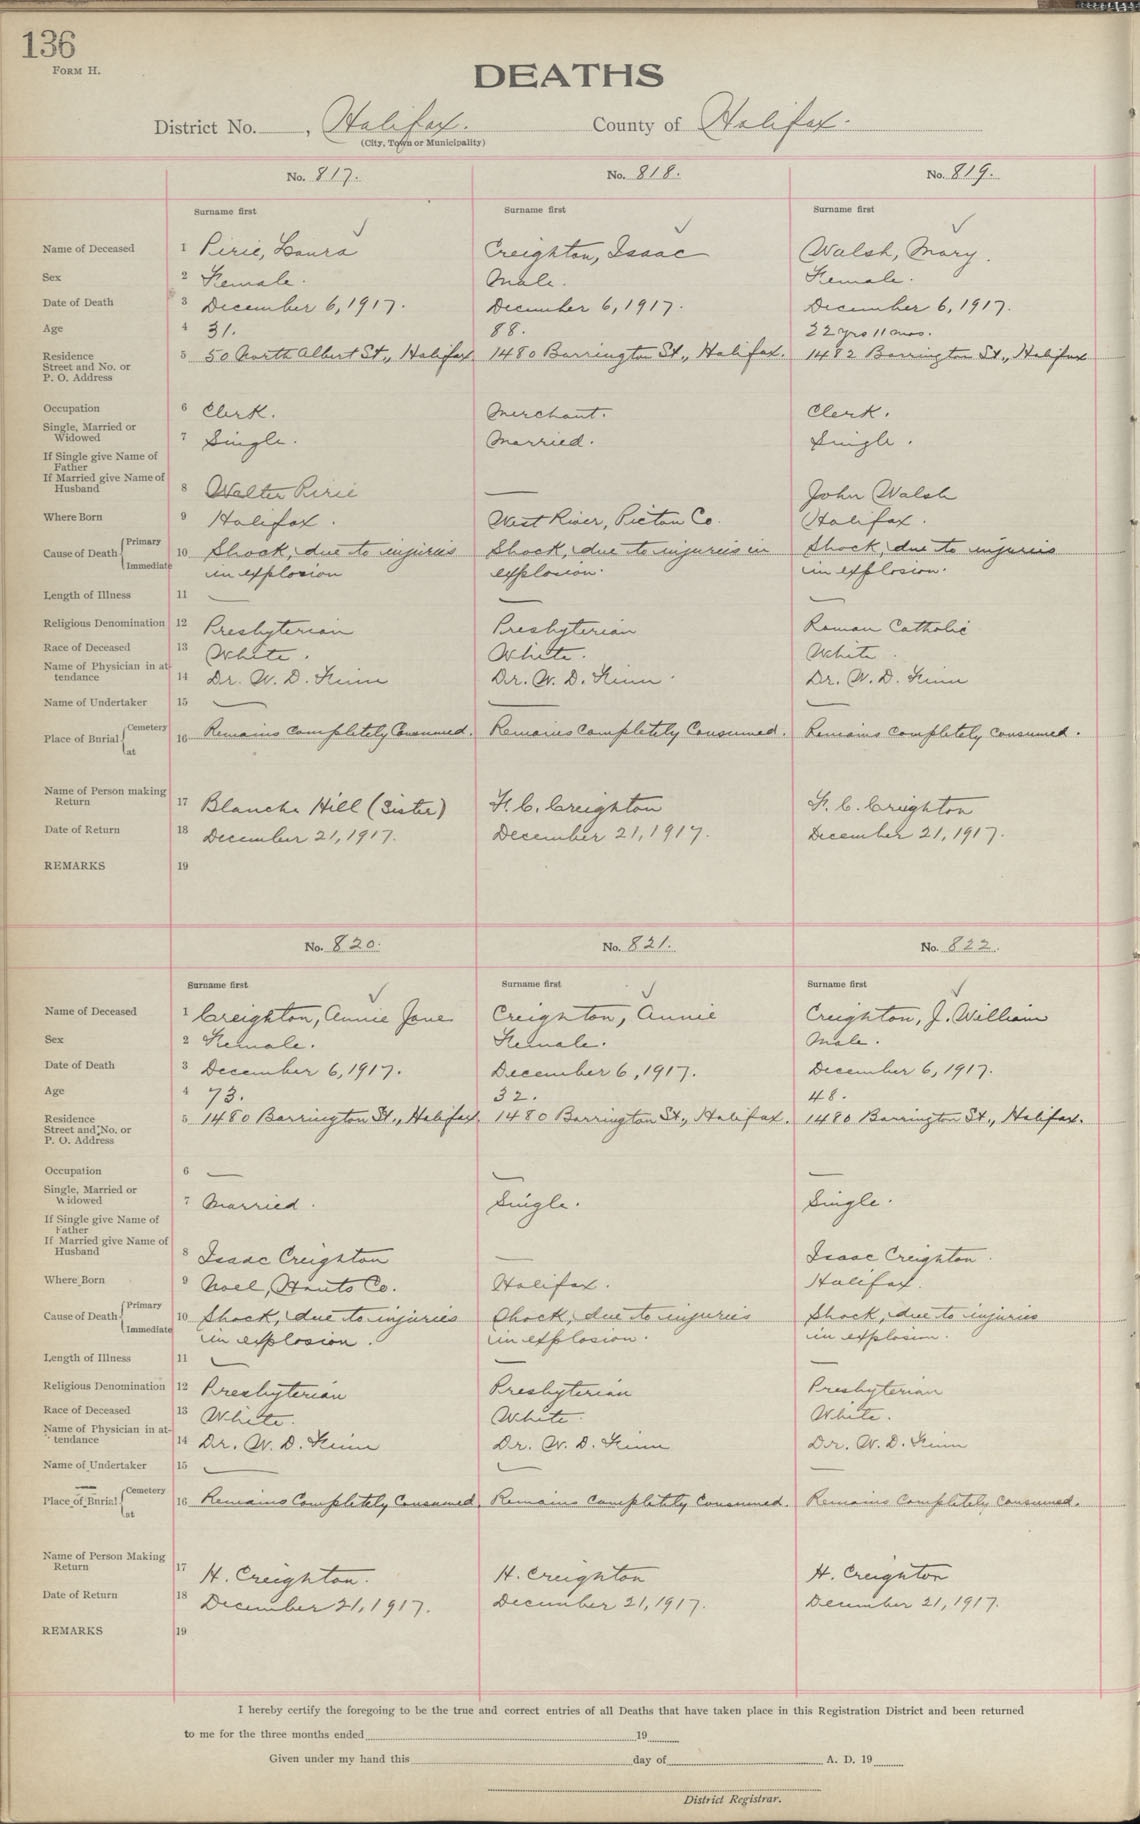 136
FORM H.
DEATHS
District No. , Halifax. County of Halifax.
(City, Town or Municipality)
No. 817. No. 818. No. 819.
Surname first Surname first Surname first
Name of Deceased 1 Pirie, Laura Creighton, Isaac Walsh, Mary.
Sex 2 Female. Male. Female.
Date of Death 3 December 6, 1917. December 6, 1917. December 6, 1917.
Age 4 31. 88. 22 yrs 11 mos.
Residence 5 50 North Albert St., Halifax 1480 Barrington St., Halifax. 1482 Barrington St., Halifax
Street and No. or
P. O. Address
Occupation 6 Clerk. Merchant. Clerk.
Single, Married or
Widowed 7 Single. Married. Single.
If Single give Name of
Father
If Married give Name of
Husband 8 Walter Pirie — John Walsh
Where Born 9 Halifax. West River, Pictou Co. Halifax.
Cause of Death { Primary
Immediate 10 Shock, due to injuries Shock, due to injuries in Shock, due to injuries
in explosion explosion. in explosion.
Length of Illness 11 — — —
Religious Denomination 12 Presbyterian Presbyterian Roman Catholic
Race of Deceased 13 White. White. White
Name of Physician in at-
tendance 14 Dr. W. D. Finn Dr. W. D. Finn. Dr. W. D. Finn
Name of Undertaker 15 — — —
Place of Burial { Cemetery
at 16 Remains Completely Consumed. Remains Completely Consumed. Remains Completely Consumed.
Name of Person making
Return 17 Blanche Hill (Sister) F. C. Creighton F. C. Creighton
Date of Return 18 December 21, 1917. December 21, 1917. December 21, 1917.
REMARKS 19
No. 820. No. 821. No. 822.
Surname first Surname first Surname first
Name of Deceased 1 Creighton, Annie Jane Creighton, Annie Creighton, J. William
Sex 2 Female. Female. Male.
Date of Death 3 December 6, 1917. December 6, 1917. December 6, 1917.
Age 4 73. 32. 48.
Residence 5 1480 Barrington St., Halifax. 1480 Barrington St., Halifax. 1480 Barrington St., Halifax.
Street and No. or
P. O. Address
Occupation 6 — — —
Single, Married or
Widowed 7 Married. Single. Single.
If Single give Name of
Father
If Married give Name of
Husband 8 Isaac Creighton — Isaac Creighton.
Where Born 9 Noel, Hants Co. Halifax. Halifax.
Cause of Death { Primary
Immediate 10 Shock, due to injuries Shock, due to injuries Shock, due to injuries
in explosion. in explosion. in explosion.
Length of Illness 11 — — —
Religious Denomination 12 Presbyterian Presbyterian Presbyterian
Race of Deceased 13 White. White. White.
Name of Physician in at-
tendance 14 Dr. W. D. Finn Dr. W. D. Finn Dr. W. D. Finn
Name of Undertaker 15 — — —
Place of Burial { Cemetery
at 16 Remains Completely Consumed. Remains Completely Consumed. Remains Completely Consumed.
Name of Person Making
Return 17 H. Creighton. H. Creighton H. Creighton
Date of Return 18 December 21, 1917. December 21, 1917. December 21, 1917.
REMARKS 19
I hereby certify the foregoing to be the true and correct entries of all Deaths that have taken place in this Registration District and been returned
to me for the three months ended 19
Given under my hand this day of A. D. 19
District Registrar.